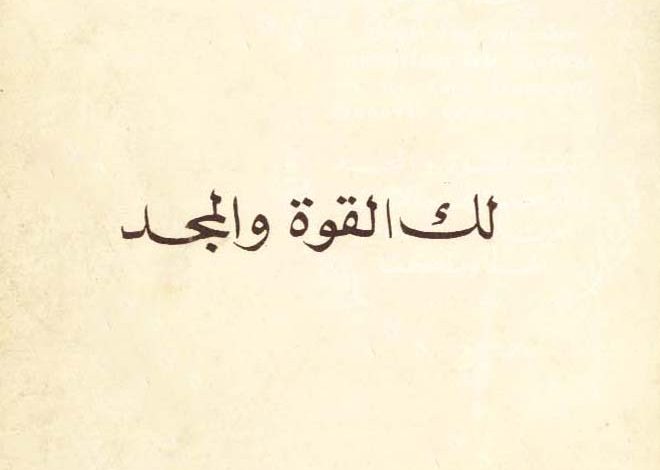 لك القوة والمجد